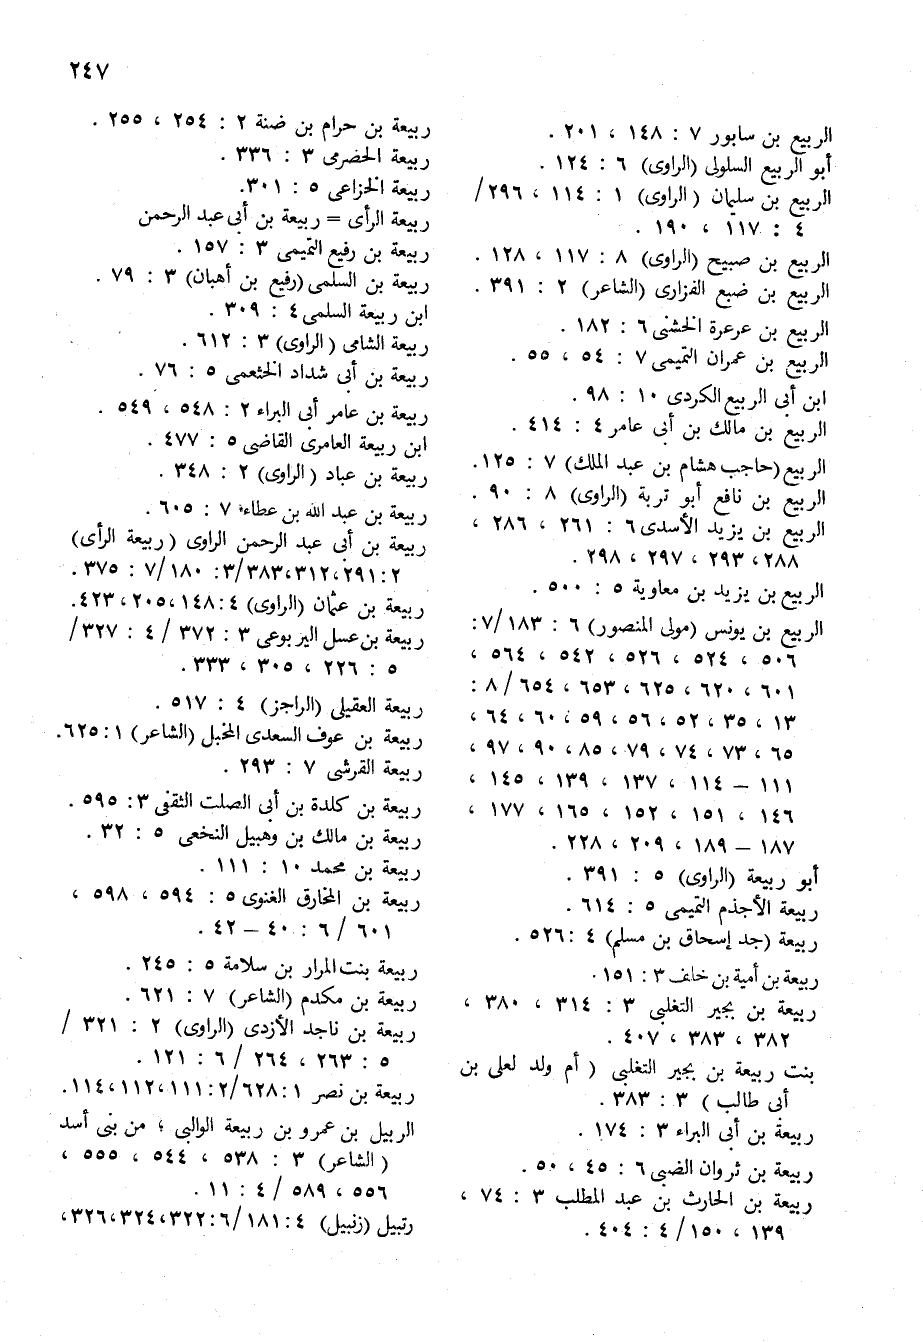 ٢٤٧
الربيع بن سابور ٧ : ١٤٨ ، ٢٠١ .
أبو الربيع السلولى (الراوى) ٦ : ١٢٤ .
الربيع بن سليمان (الراوى) ١ : ١١٤ ، ٢٩٦/
٤ : ١١٧ ، ١٩٠ .
الربيع بن صبيح (الراوى) ٨ : ١١٧ ، ١٢٨ .
الربيع بن ضبع الفزارى (الشاعر) ٢ : ٣٩١ .
الربيع بن عرعرة الخشنى ٦ : ١٨٢ .
الربيع بن عمران التميمى ٧ : ٥٤ ، ٥٥ .
ابن أبى الربيع الكردى ١٠ : ٩٨ .
الربيع بن مالك بن أبى عامر ٤ : ٤١٤ .
الربيع (حاجب هشام بن عبد الملك) ٧ : ١٢٥.
الربيع بن نافع أبو توبة (الراوى) ٨ : ٩٠ .
الربيع بن يزيد الأسدى ٦ : ٢٦١ ، ٢٨٦ ،
٢٨٨، ٢٩٣ ، ٢٩٧ ، ٢٩٨ .
الربيع بن يزيد بن معاوية ٥ : ٥٠٠ .
الربيع بن يونس (مولى المنصور) ٦ : ١٨٣ /٧:
٥٠٦ ، ٥٢٤ ، ٥٢٦ ، ٥٤٢ ، ٥٦٤ ،
٦٠١ ، ٦٢٠ ، ٦٢٥ ، ٦٥٣ ، ٦٥٤ / ٨ :
١٣ ، ٣٥ ، ٥٢ ، ٥٦ ، ٥٩ ، ٦٠ ، ٦٤ ،
٦٥ ، ٧٣ ، ٧٤ ، ٧٩ ، ٨٥ ، ٩٠ ، ٩٧ ،
١١١ – ١١٤ ، ١٣٧ ، ١٣٩ ، ١٤٥ ،
١٤٦ ، ١٥١ ، ١٥٢ ، ١٦٥ ، ١٧٧ ،
١٨٧ – ١٨٩ ، ٢٠٩ ، ٢٢٨ .
أبو ربيعة (الراوى) ٥ : ٣٩١ .
ربيعة الأجذم التميمى ٥ : ٦١٤ .
ربيعة (جد إسحاق بن مسلم) ٤ :٥٢٦ .
ربيعة بن أمية بن خلف ٣ : ١٥١.
ربيعة بن بجير التغلبى ٣ : ٣١٤ ، ٣٨٠ ،
٣٨٢ ، ٣٨٣ ، ٤٠٧ .
بنت ربيعة بن بجير التغلبى ( أم ولد لعلى بن
أبى طالب ) ٣ : ٣٨٣ .
ربيعة بن أبى البراء ٣ : ١٧٤ .
ربيعة بن ثروان الضبى ٦ : ٤٥ ، ٥٠ .
ربيعة بن الحارث بن عبد المطلب ٣ : ٧٤ ،
١٣٩ ، ١٥٠ /٤ : ٤٠٤ .
ربيعة بن حرام بن ضنة ٢ : ٢٥٤ ، ٢٥٥ .
ربيعة الحضرمى ٣ : ٣٣٦ .
ربيعة الخزاعى ٥ : ٣٠١.
ربيعة الرأى = ربيعة بن أبى عبد الرحمن
ربيعة بن رفيع التميمى ٣ : ١٥٧ .
ربيعة بن السلمى (رفيع بن أهبان) ٣ : ٧٩ .
ابن ربيعة السلمى ٤ : ٣٠٩ .
ربيعة الشامى ( الراوى) ٣ : ٦١٢ .
ربيعة بن أبى شداد الخثعمى ٥ : ٧٦ .
ربيعة بن عامر أبى البراء ٢ : ٥٤٨ ، ٥٤٩ .
ابن ربيعة العامرى القاضى ٥ : ٤٧٧ .
ربيعة بن عباد ( الراوى) ٢ : ٣٤٨ .
ربيعة بن عبد الله بن عطاء ٧ : ٦٠٥ .
ربيعة بن أبى عبد الرحمن الراوى ( ربيعة الرأى)
٢ :٢٩١، ٣١٢، ٣٨٣ /٣: ١٨٠ /٧ : ٣٧٥ .
ربيعة بن عثمان (الراوى) ٤ :١٤٨ ، ٢٠٥ ، ٤٢٣.
ربيعة بن عسل اليربوعى ٣ : ٣٧٢ / ٤ : ٣٢٧/
٥ : ٢٢٦ ، ٣٠٥ ، ٣٣٣ .
ربيعة العقيلى (الراجز) ٤ : ٥١٧ .
ربيعة بن عوف السعدى المخبل (الشاعر) ١ :٦٢٥.
ربيعة القرشى ٧ : ٢٩٣ .
ربيعة بن كلدة بن أبى الصلت الثقفى ٣: ٥٩٥ .
ربيعة بن مالك بن وهبيل النخعى ٥ : ٣٢ .
ربيعة بن محمد ١٠ : ١١١ .
ربيعة بن المخارق الغنوى ٥ : ٥٩٤ ، ٥٩٨ ،
٦٠١ / ٦ : ٤٠ – ٤٢ .
ربيعة بنت المرار بن سلامة ٥ : ٢٤٥ .
ربيعة بن مكدم (الشاعر) ٧ : ٦٢١ .
ربيعة بن ناجد الأزدى (الراوى) ٢ : ٣٢١ /
٥ : ٢٦٣ ، ٢٦٤ / ٦ : ١٢١ .
ربيعة بن نصر ١ :٦٢٨ /٢ :١١١ ،١١٢ ،١١٤.
الربيل بن عمرو بن ربيعة الوالبى ؛ من بنى أسد
( الشاعر) ٣ : ٥٣٨ ، ٥٤٤ ، ٥٥٥ ،
٥٥٦ ، ٥٨٩ / ٤ : ١١ .
رتبيل (زنبيل) ٤ :١٨١ /٦ :٣٢٢ ،٣٢٤ ،٣٢٦،